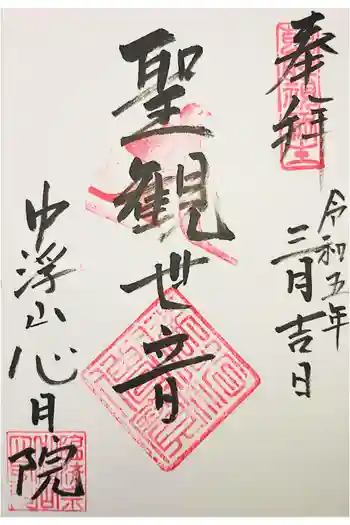 奉拝
令和五年
三月吉日
聖観世音
中浮山心月院